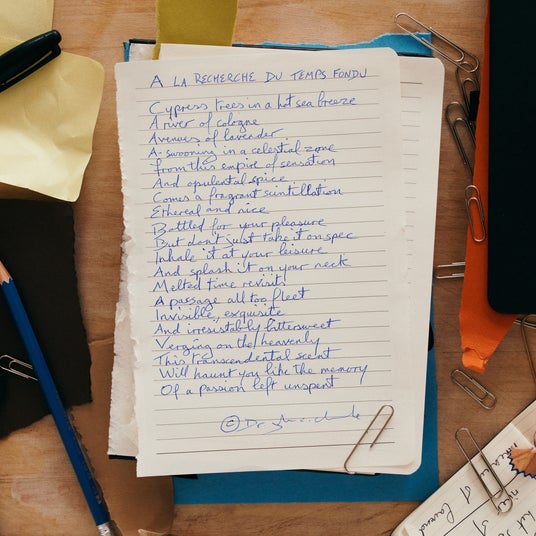 A LA RECHERCHE DU TEMPS FONDU
Cypress trees in a hot sea breeze
A river of cologne
Avenues of lavender
A-swooning in a celestial zone
From this empire of sensation
And opulental spice
Comes a fragrant scintillation
Ethereal and nice
Bottled for your pleasure
But don't just take it on spec
Inhale it at your leisure
And splash it on your neck
Melted time revisits
A passage all too fleet
Invisible, exquisite
And irresistably bittersweet
Verging on the heavenly
This transcendental scent
Will haunt you like the memory
Of a passion left unspent
© Dr